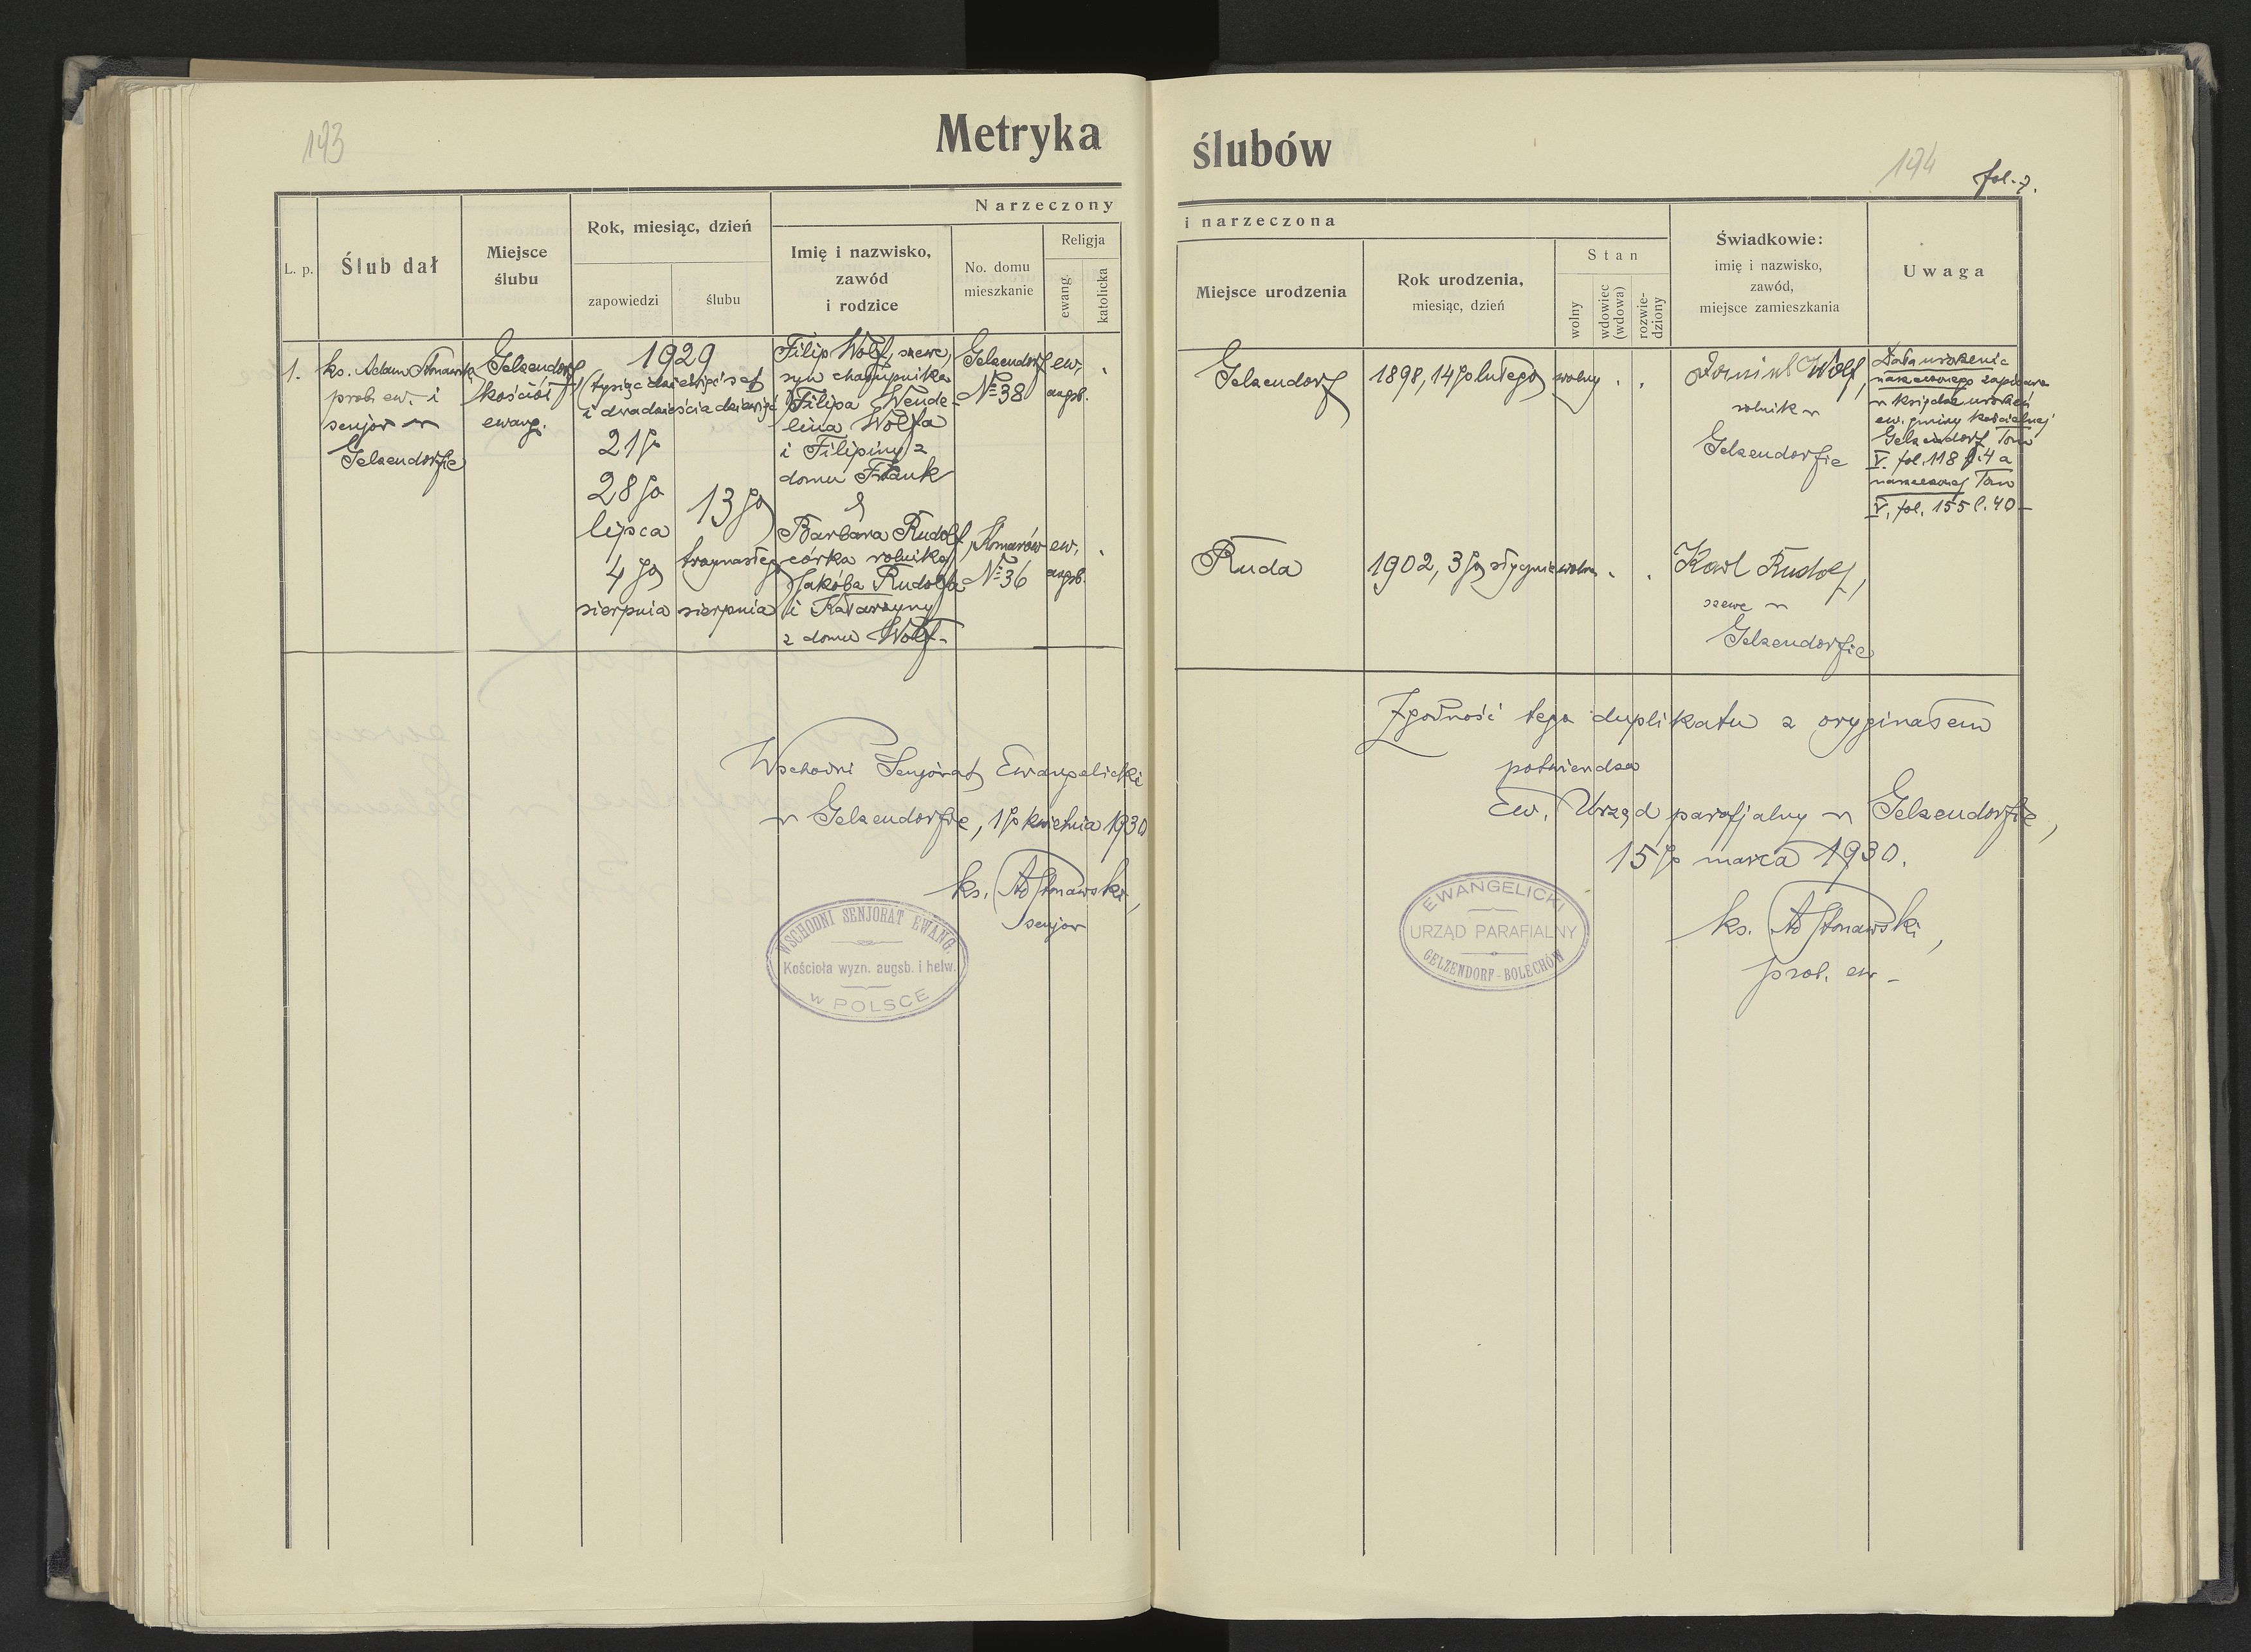 193
Metryka
ślubów
194
fol. 7.
L. p.
Ślub dał
Miejsce
ślubu
Rok, miesiąc, dzień
zapowiedzi
ślubu
Narzeczony
Imię i nazwisko,
zawód
i rodzice
No. domu
mieszkanie
Religja
ewang.
katolicka
i narzeczona
Miejsce urodzenia
Rok urodzenia,
miesiąc, dzień
Stan
wolny
wdowiec
(wdowa)
rozwie-
dziony
Świadkowie:
imię i nazwisko,
zawód,
miejsce zamieszkania
Uwaga
1.
ks. Adam Stonawski
prob. ew. i
senjor w
Gelsendorfie
Gelsendorf
kościół
ewang.
1929
(tysiąc dziewięćset
i dwadzieścia dziewięć)
21go
28go
lipca
4go
sierpnia
13go
trzynastego
sierpnia
Filip Wolf, szewc,
syn chałupnika
Filipa Wende-
lina Wolfa
i Filipiny z
domu Frank
&
Barbara Rudolf
córka rolnika
Jakóba Rudolfa
i Katarzyny
z domu Wolf -
Gelsendorf
No 38
ew.
augsb.
Komarów
No 36
ew.
augsb.
Gelsendorf
1898, 14go lutego
wolny
Wolf,
rolnik w
Gelsendorfie
Data urodzenia
narzeczonego zapisana
w księdze urodzeń
ew. gminy kościelnej
Gelsendorf Tom
V. fol. 118 l. 4 a
narzeczonej Tom
V. fol. 155 l. 40 -
Ruda
1902, 3go stycznia
wolna
Karl Rudolf,
szewc w
Gelsendorfie
Wschodni Senjorat Ewangelicki
w Gelsendorfie, 1go kwietnia 1930
ks. Ad Stonawski,
senjor
WSCHODNI SENJORAT EWANG.
Kościoła wyzn. augsb. i helw.
w POLSCE
Zgodność tego duplikatu z oryginałem
potwierdza
Ew. Urząd parafjalny w Gelsendorfie,
15go marca 1930.
ks. Ad Stonawski,
prob. ew -
EWANGELICKI
URZĄD PARAFIALNY
GELZENDORF - BOLECHÓW